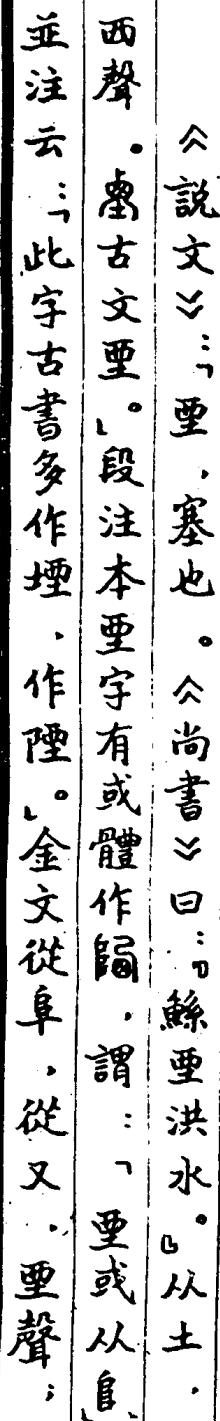 《說文》：「垔，塞也。《尚書》曰：『鯀垔洪水。』从土，
西聲。𡍎古文垔。」段注本垔字有或體作，謂：「垔或从𨸏，
並注云：「此字古書多作堙、作陻。」金文從阜，從又，垔聲；